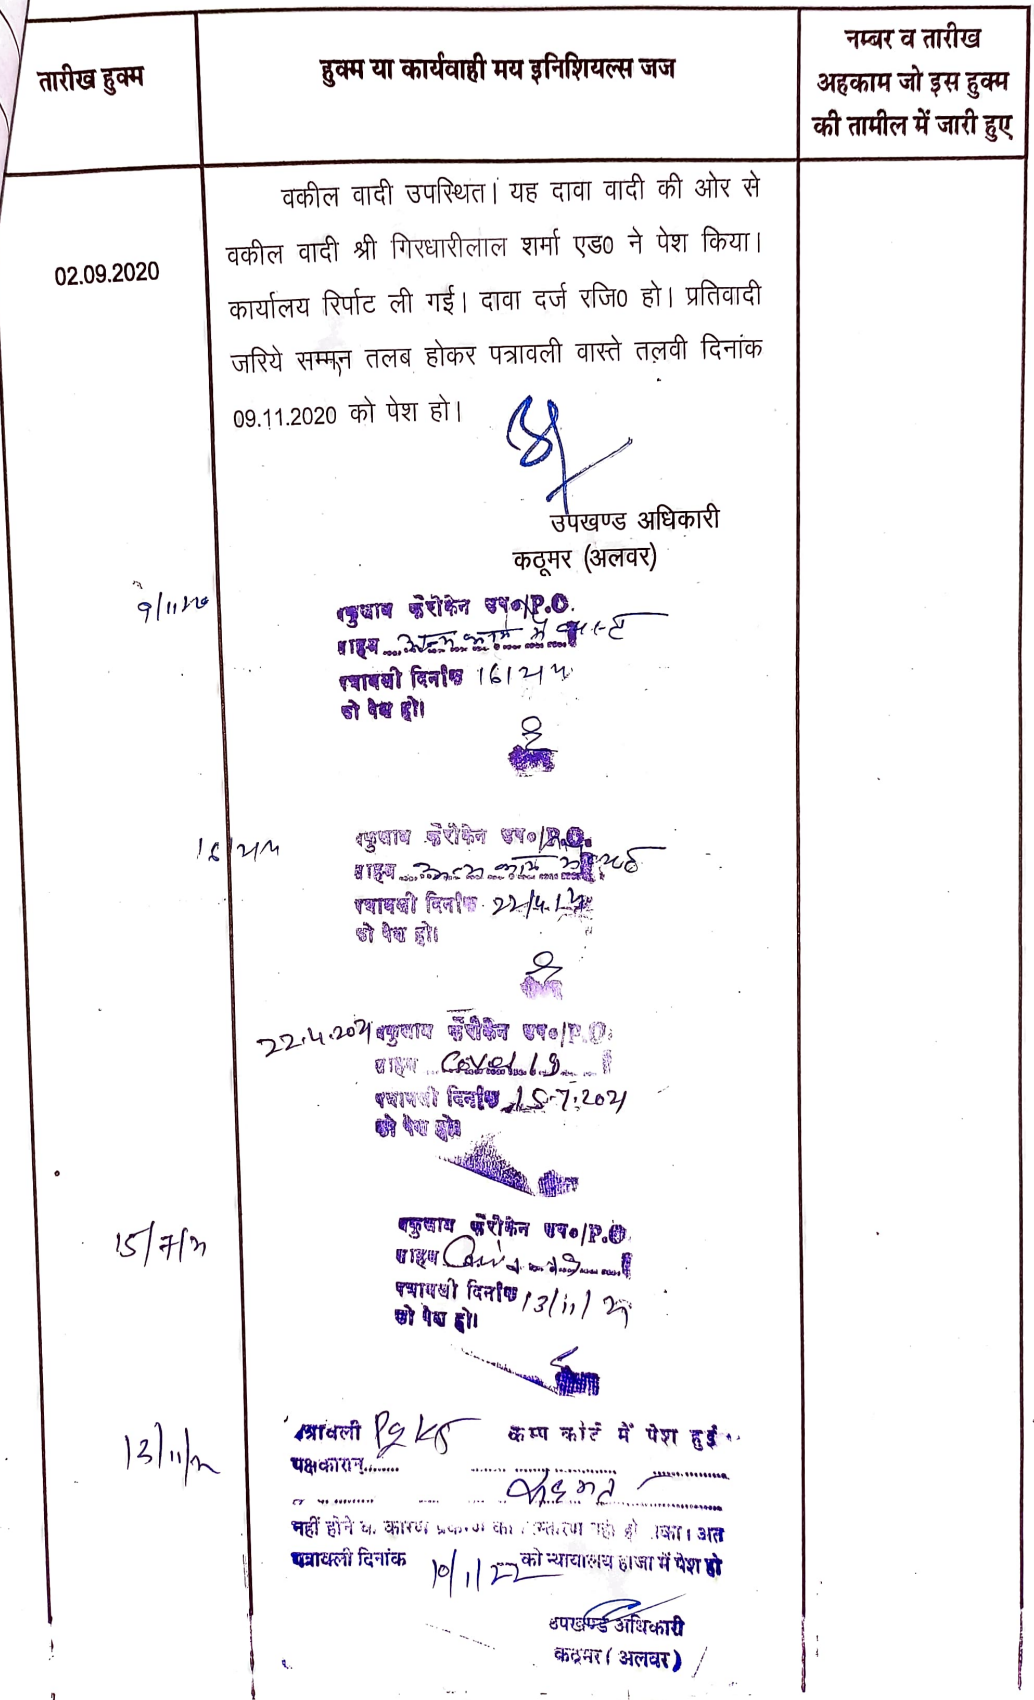 तारीख हुक्म
हुक्म या कार्यवाही मय इनिशियल्स जज
नम्बर व तारीख
अहकाम जो इस हुक्म
की तामील में जारी हुए
02.09.2020
वकील वादी उपस्थित। यह दावा वादी की ओर से
वकील वादी श्री गिरधारीलाल शर्मा एड0 ने पेश किया।
कार्यालय रिर्पाट ली गई। दावा दर्ज रजि0 हो। प्रतिवादी
जरिये सम्मन तलब होकर पत्रावली वास्ते तलवी दिनांक
09.11.2020 को पेश हो।
उपखण्ड अधिकारी
कठूमर (अलवर)
9/11/20
P.O.
साहब अन्य कार्य में
पत्रावली दिनांक
को पेश हो।
P.O.
साहब अन्य कार्य
पत्रावली दिनांक 22/4/
को पेश हो।
22.4.2021
P.O.
साहब Covid 19
पत्रावली दिनांक 15.7.2021
को पेश हो।
15/7/21
P.O.
साहब
पत्रावली दिनांक 13/11/21
को पेश हो।
13/11/21
पत्रावली कैम्प कोर्ट में पेश हुई
पक्षकारान
सहमत
नहीं होने के कारण प्रकरण का निस्तारण नही हो सका। अत
पत्रावली दिनांक 10/1/22 को न्यायालय हाजा में पेश हो
उपखण्ड अधिकारी
कठूमर (अलवर)